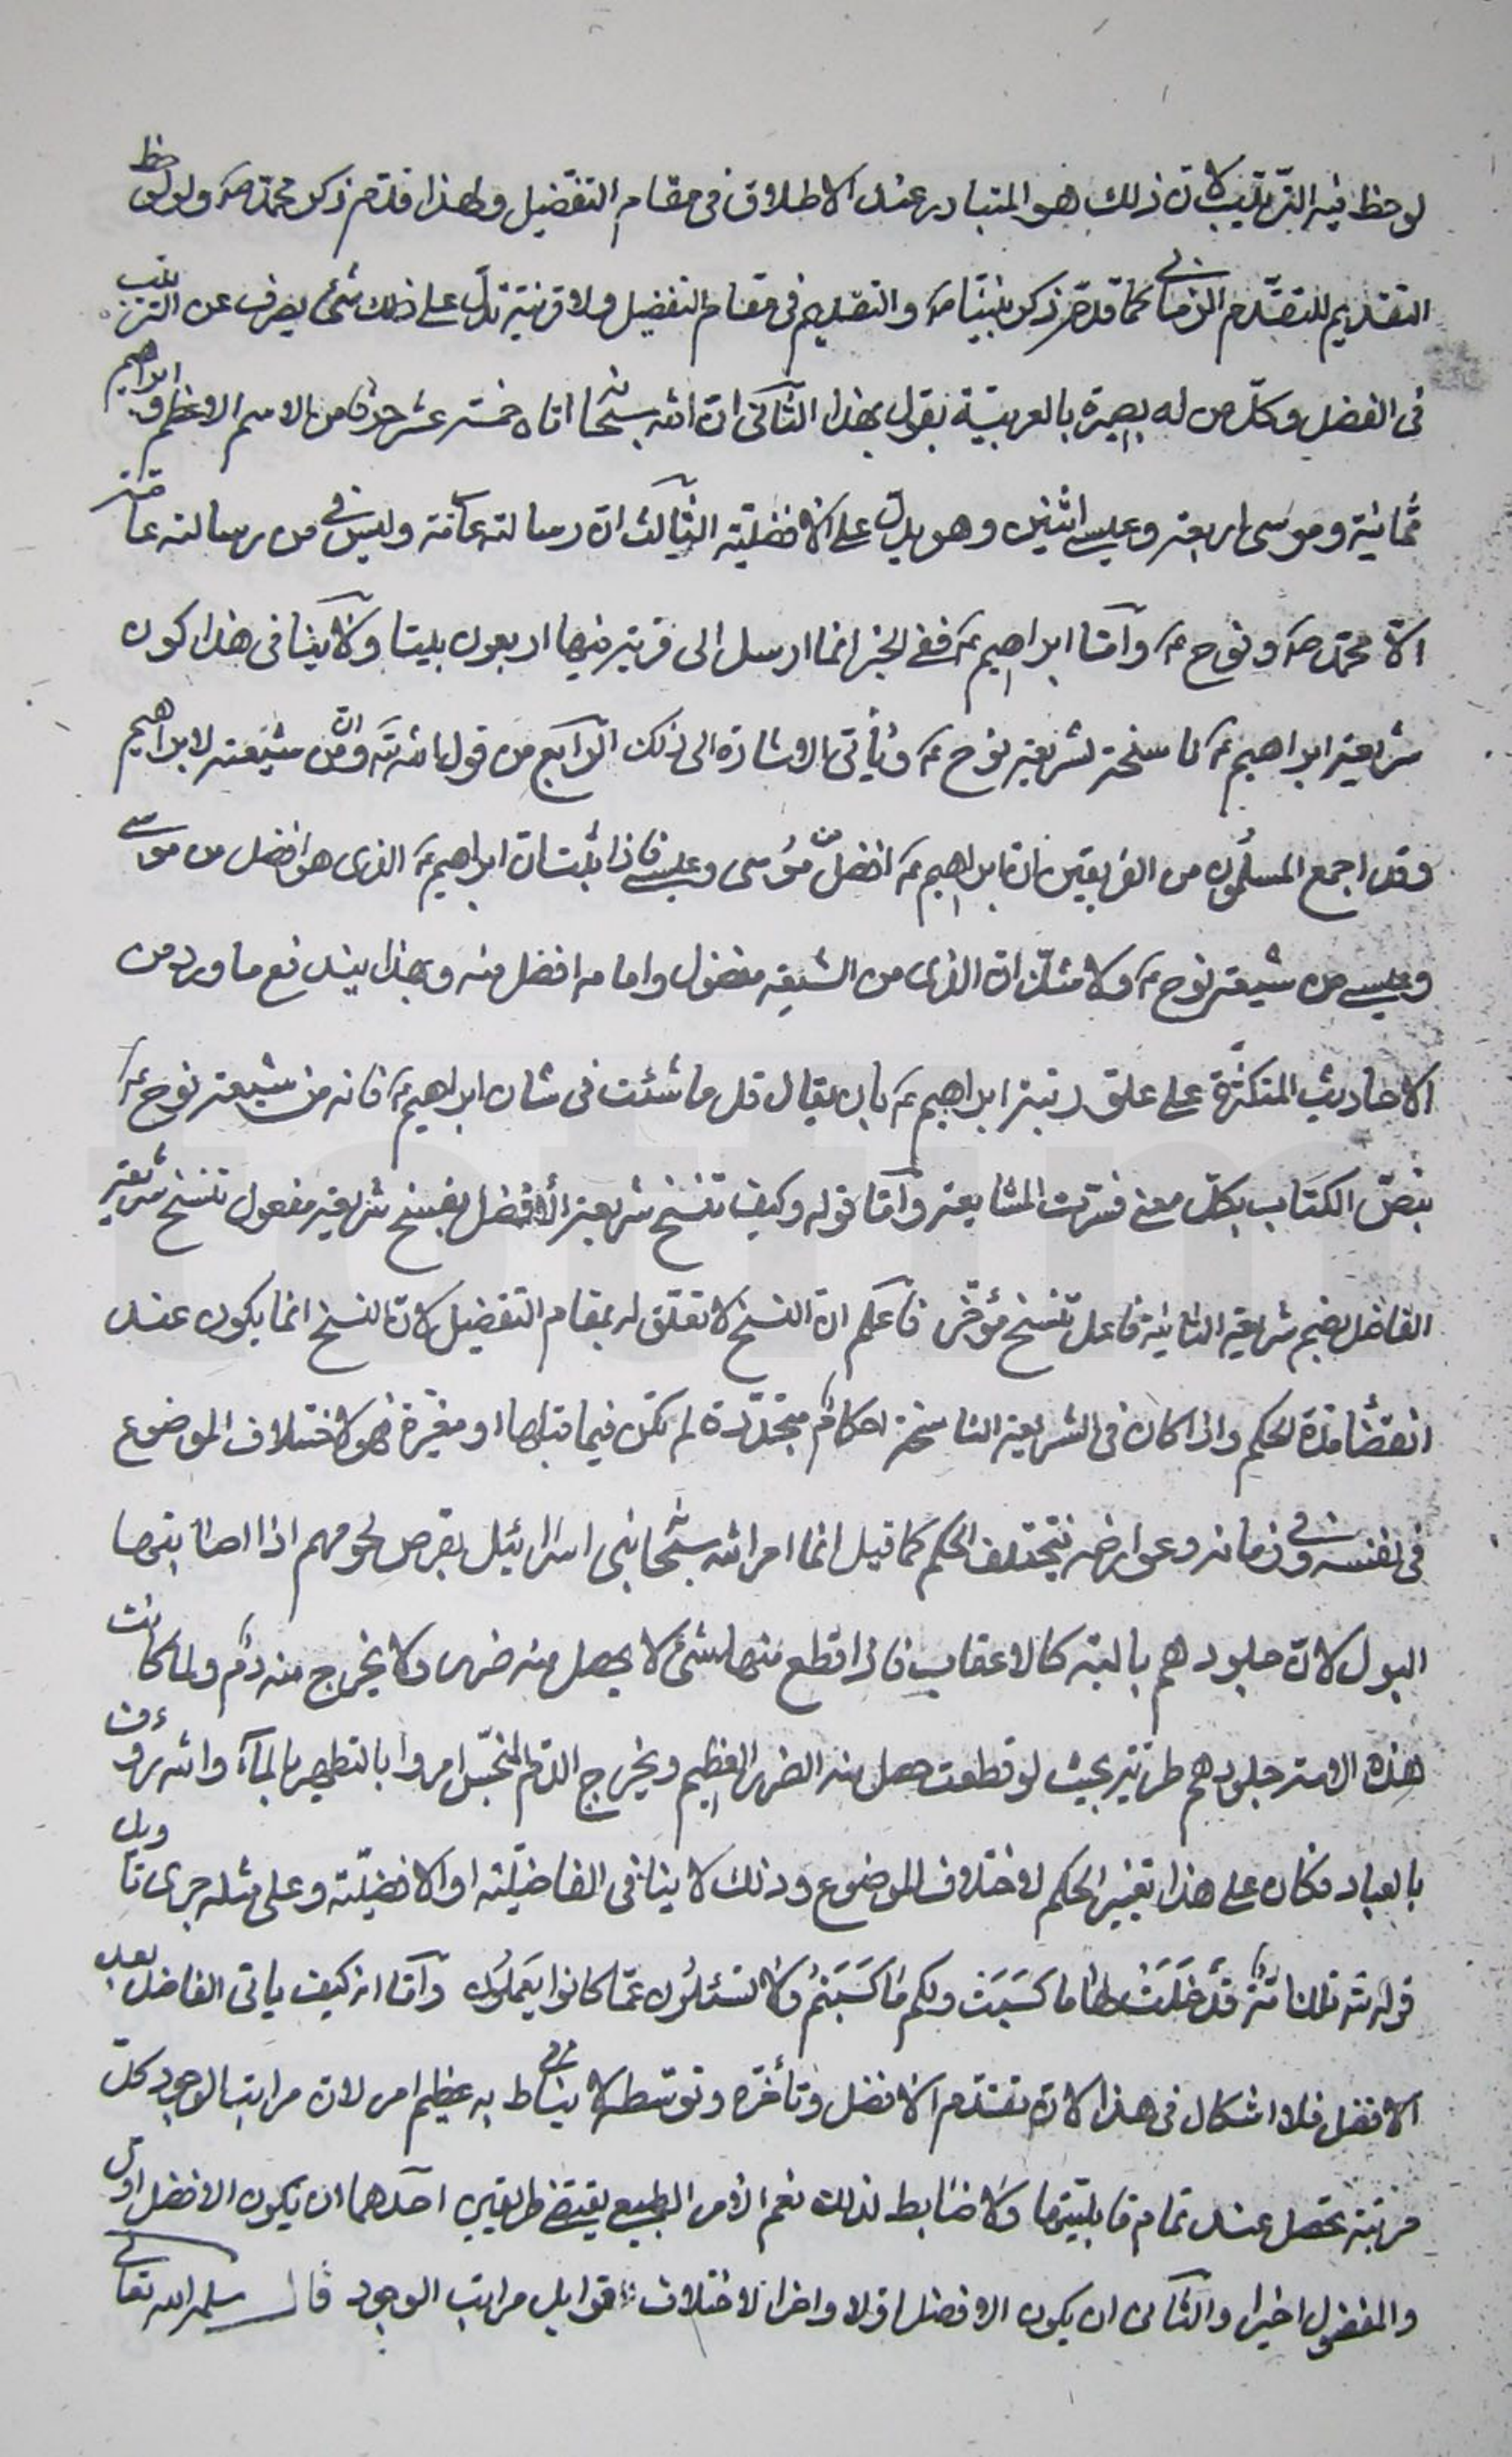 لوحظ فيه الترتيب لان ذلك هو المتبادر عند الاطلاق فى مقام التفضيل ولهذا قدّم ذكر محمّد ص ولو لوحظ
التقديم للتقدّم الزمانى لما قدّم ذكر نبيّنا ص والتقديم فى مقام التفضيل ولا قرينة تدلّ على ذلك شئ يصرف عن الترتيب
فى الفضل وكلّ من له بصيرة بالعربيّة يقول بهذا الثآنى انّ الله سبحانه اتاه خمسة عشر حرفا من الاسم الاعظم وابراهيم
ثمانية وموسى اربعة وعيسى اثنين وهو يدلّ على الافضليّة الثآلث انّ رسالته عامّة وليس فى من رسالته عامّة
الاّ محمّد ص ونوح ع وآمّا ابراهيم ع ففى الخبر انما ارسل الى قرية فيها اربعون بيتا ولا ينافى هذا كون
شريعة ابراهيم ع ناسخة لشريعة نوح ع ويأتى الاشارة الى ذلك الرّآبع من قول الله تع وانّ من شيعته لابراهيم
وقد اجمع المسلمون من الفريقين انّ ابراهيم ع افضل من موسى وعيسى فاذا ثبت انّ ابراهيم ع الذى هو افضل من موسى
وعيسى من شيعة نوح ع ولا شكّ انّ الذى من الشيعة مفضول وامامه افضل منه وبهذا يندفع ما ورد من
الاحاديث المتكثّرة على علوّ رتبة ابراهيم ع بان يقال قل ما شئت فى شان ابراهيم ع فانه من شيعة نوح ع
بنصّ الكتاب بكلّ معنى فسّرت المشايعة وآمّا قوله وكيف تنسخ شريعة الأفضل بفتح شريعة مفعول تنسخ شريعة
الفاضل بضم شريعة الثانية فاعل تنسخ مؤخّر فاعلم انّ النسخ لا تعلّق له بمقام التفضيل لانّ النسخ انما يكون عند
انقضاء مدّة الحكم واذا كان فى الشريعة الناسخة احكام متجدّدة لم تكن فيما قبلها او مغيّرة فهو لاختلاف الموضوع
فى نفسه وفى زمانه وعوارضه فيختلف الحكم كما قيل انما امر الله سبحانه بنى اسرائيل بقرض لحومهم اذا اصابها
البول لانّ جلودهم يابسة كالاعقاب فاذا قطع منها شئ لا يحصل منه ضرر ولا يخرج منه دم ولما كانت
هذه الامّة جلودهم طريّة بحيث لو قطعت حصل منه الضرر العظيم ويخرج الدّم المنجّس امروا بالتطهير بالمآء والله رؤف
بالعباد فكان على هذا تغيير الحكم لاختلاف الموضوع وذلك لا ينافى الفاضليّة او الافضليّة وعلى مثله جرى تاويل
قوله تع تلك امّة قد خَلَتْ لها ما كَسَبَت ولكم مَا كَسَبتُم ولا تسئلون عمّا كانوا يَعملون وآمّا انه كيف ياتى الفاضل بعد
الافضل فلا اشكال فى هذا لانّ تقدّم الافضل وتأخّره وتوسّطه لا يناط به عظيم امر لان مراتب الوجود كلّ
مرتبة تحصل عند تمام قابليّتها ولا ضابط لذلك نعم الامر الطبيعى يقتضى طريقين احدهما ان يكون الافضل اوّل
والمفضول اخيرا والثآنى ان يكون الافضل اوّلا واخرا لاختلاف قوابل مراتب الوجود قال سلمه الله تعالى